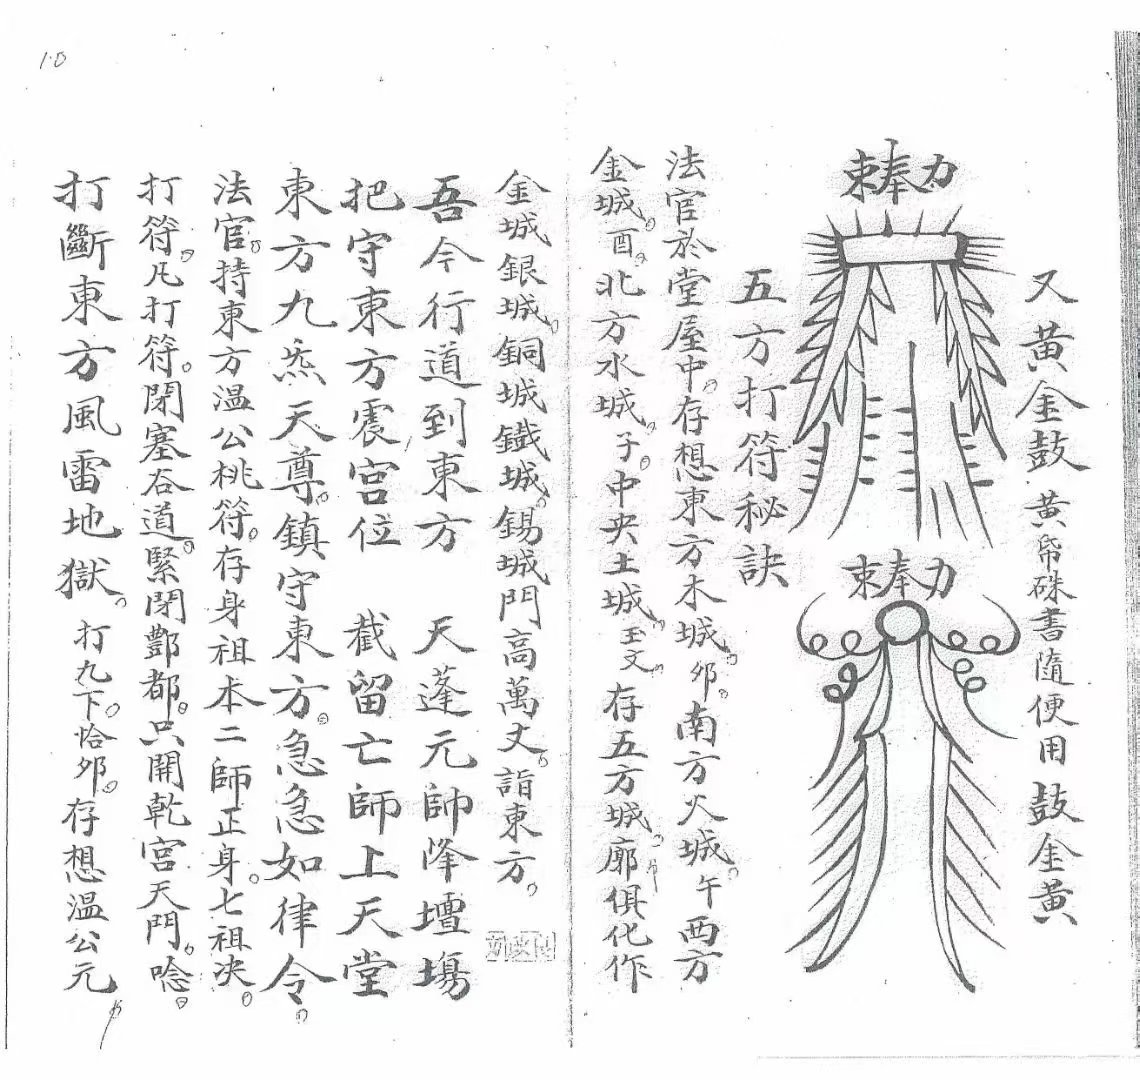 又黃金鼓 黃帋硃書隨便用 鼓金黃
力奉束
力奉束
五方打符秘訣
法官於堂屋中。存想東方木城。夘。南方火城。午西方
金城。酉。北方水城。子。中央土城。玉文。存五方城。廓俱化作
金城銀城。銅城鐵城。錫城門高萬丈。詣東方。
吾今行道到東方 天蓬元帥降壇場
把守東方震宮位 截留亡師上天堂
東方九炁天尊。鎮守東方。急急如律令。
法官。持東方溫公桃符。存身祖本二師正身。七祖决。
打符。凡打符。閉塞谷道。緊閉酆都。只開乾宮天門。唸。
打斷東方風雷地獄。打九下。恰夘。存想溫公元
10